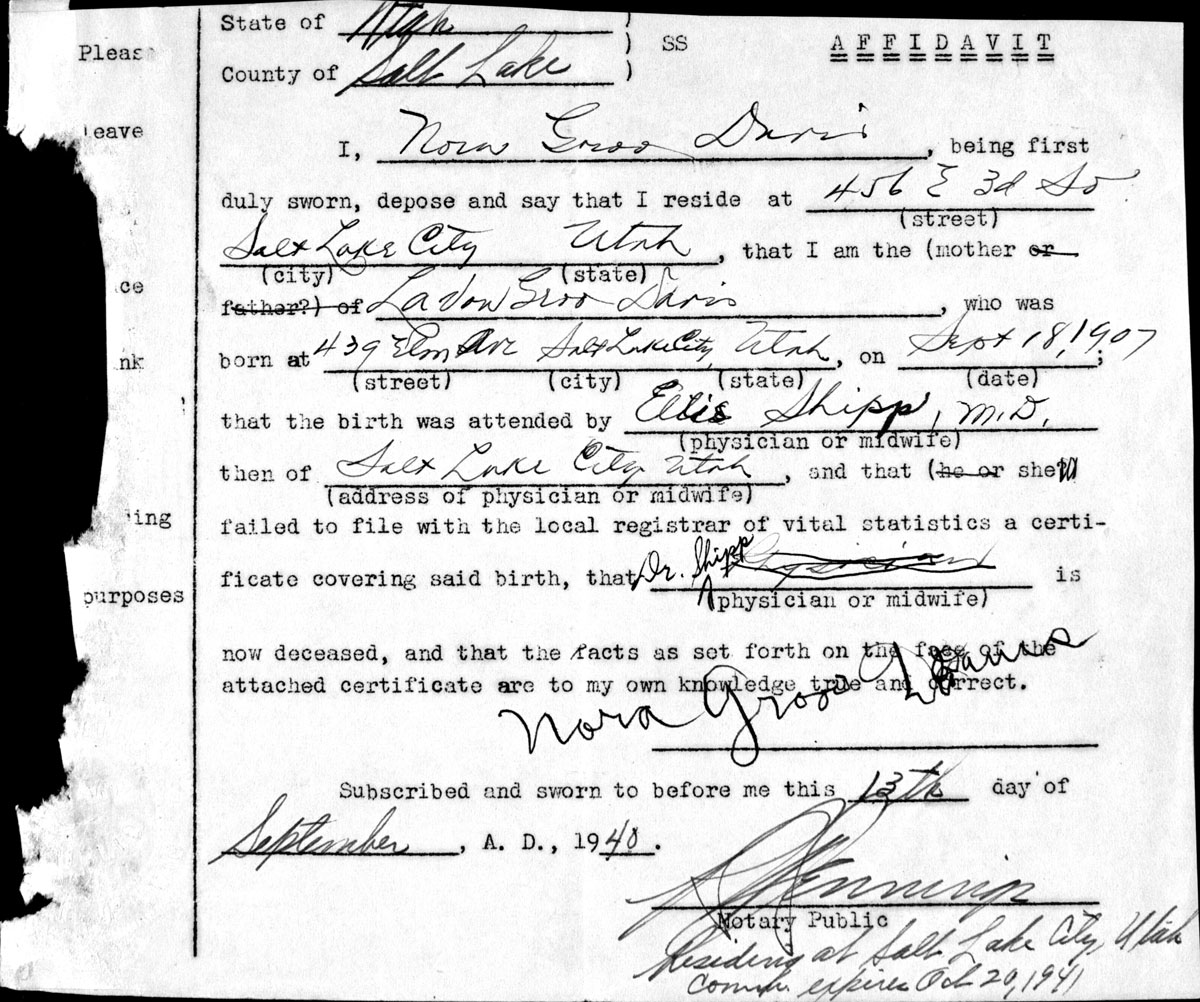 State of Utah )
) SS AFFIDAVIT
County of Salt Lake )
Pleas
leave
ce
nk
ing
purposes
I, Nora Groo Davis, being first
duly sworn, depose and say that I reside at 456 E 3d So
(street)
Salt Lake City Utah, that I am the (mother or
(city) (state)
father?) of LaVon Groo Davis, who was
born at 439 Elm Ave Salt Lake City, Utah, on Sept 18, 1907;
(street) (city) (state) (date)
that the birth was attended by Ellis Shipp, M.D.
(physician or midwife)
then of Salt Lake City Utah, and that (he or she)
(address of physician or midwife)
failed to file with the local registrar of vital statistics a certi-
ficate covering said birth, that Dr. Shipp Physician is
(physician or midwife)
now deceased, and that the facts as set forth on the face of the
attached certificate are to my own knowledge true and correct.
Nora Groo Davis
Subscribed and sworn to before me this 13th day of
September, A. D., 1940.
Jennings
Notary Public
Residing at Salt Lake City, Utah
Comm. expires Oct 20, 1941